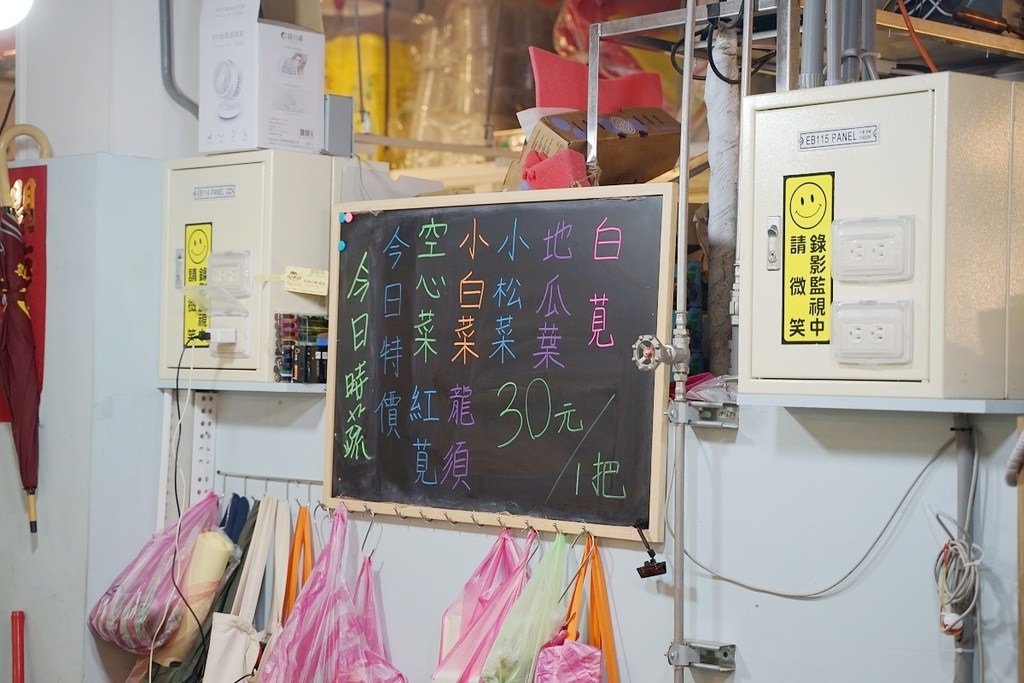 白莧
地瓜葉
小松菜
小白菜
空心菜
龍須
紅莧
30元/1把
今日特價
今日時蔬
EB115 PANEL
錄影監視中
請微笑
EB114 PANEL
請微笑